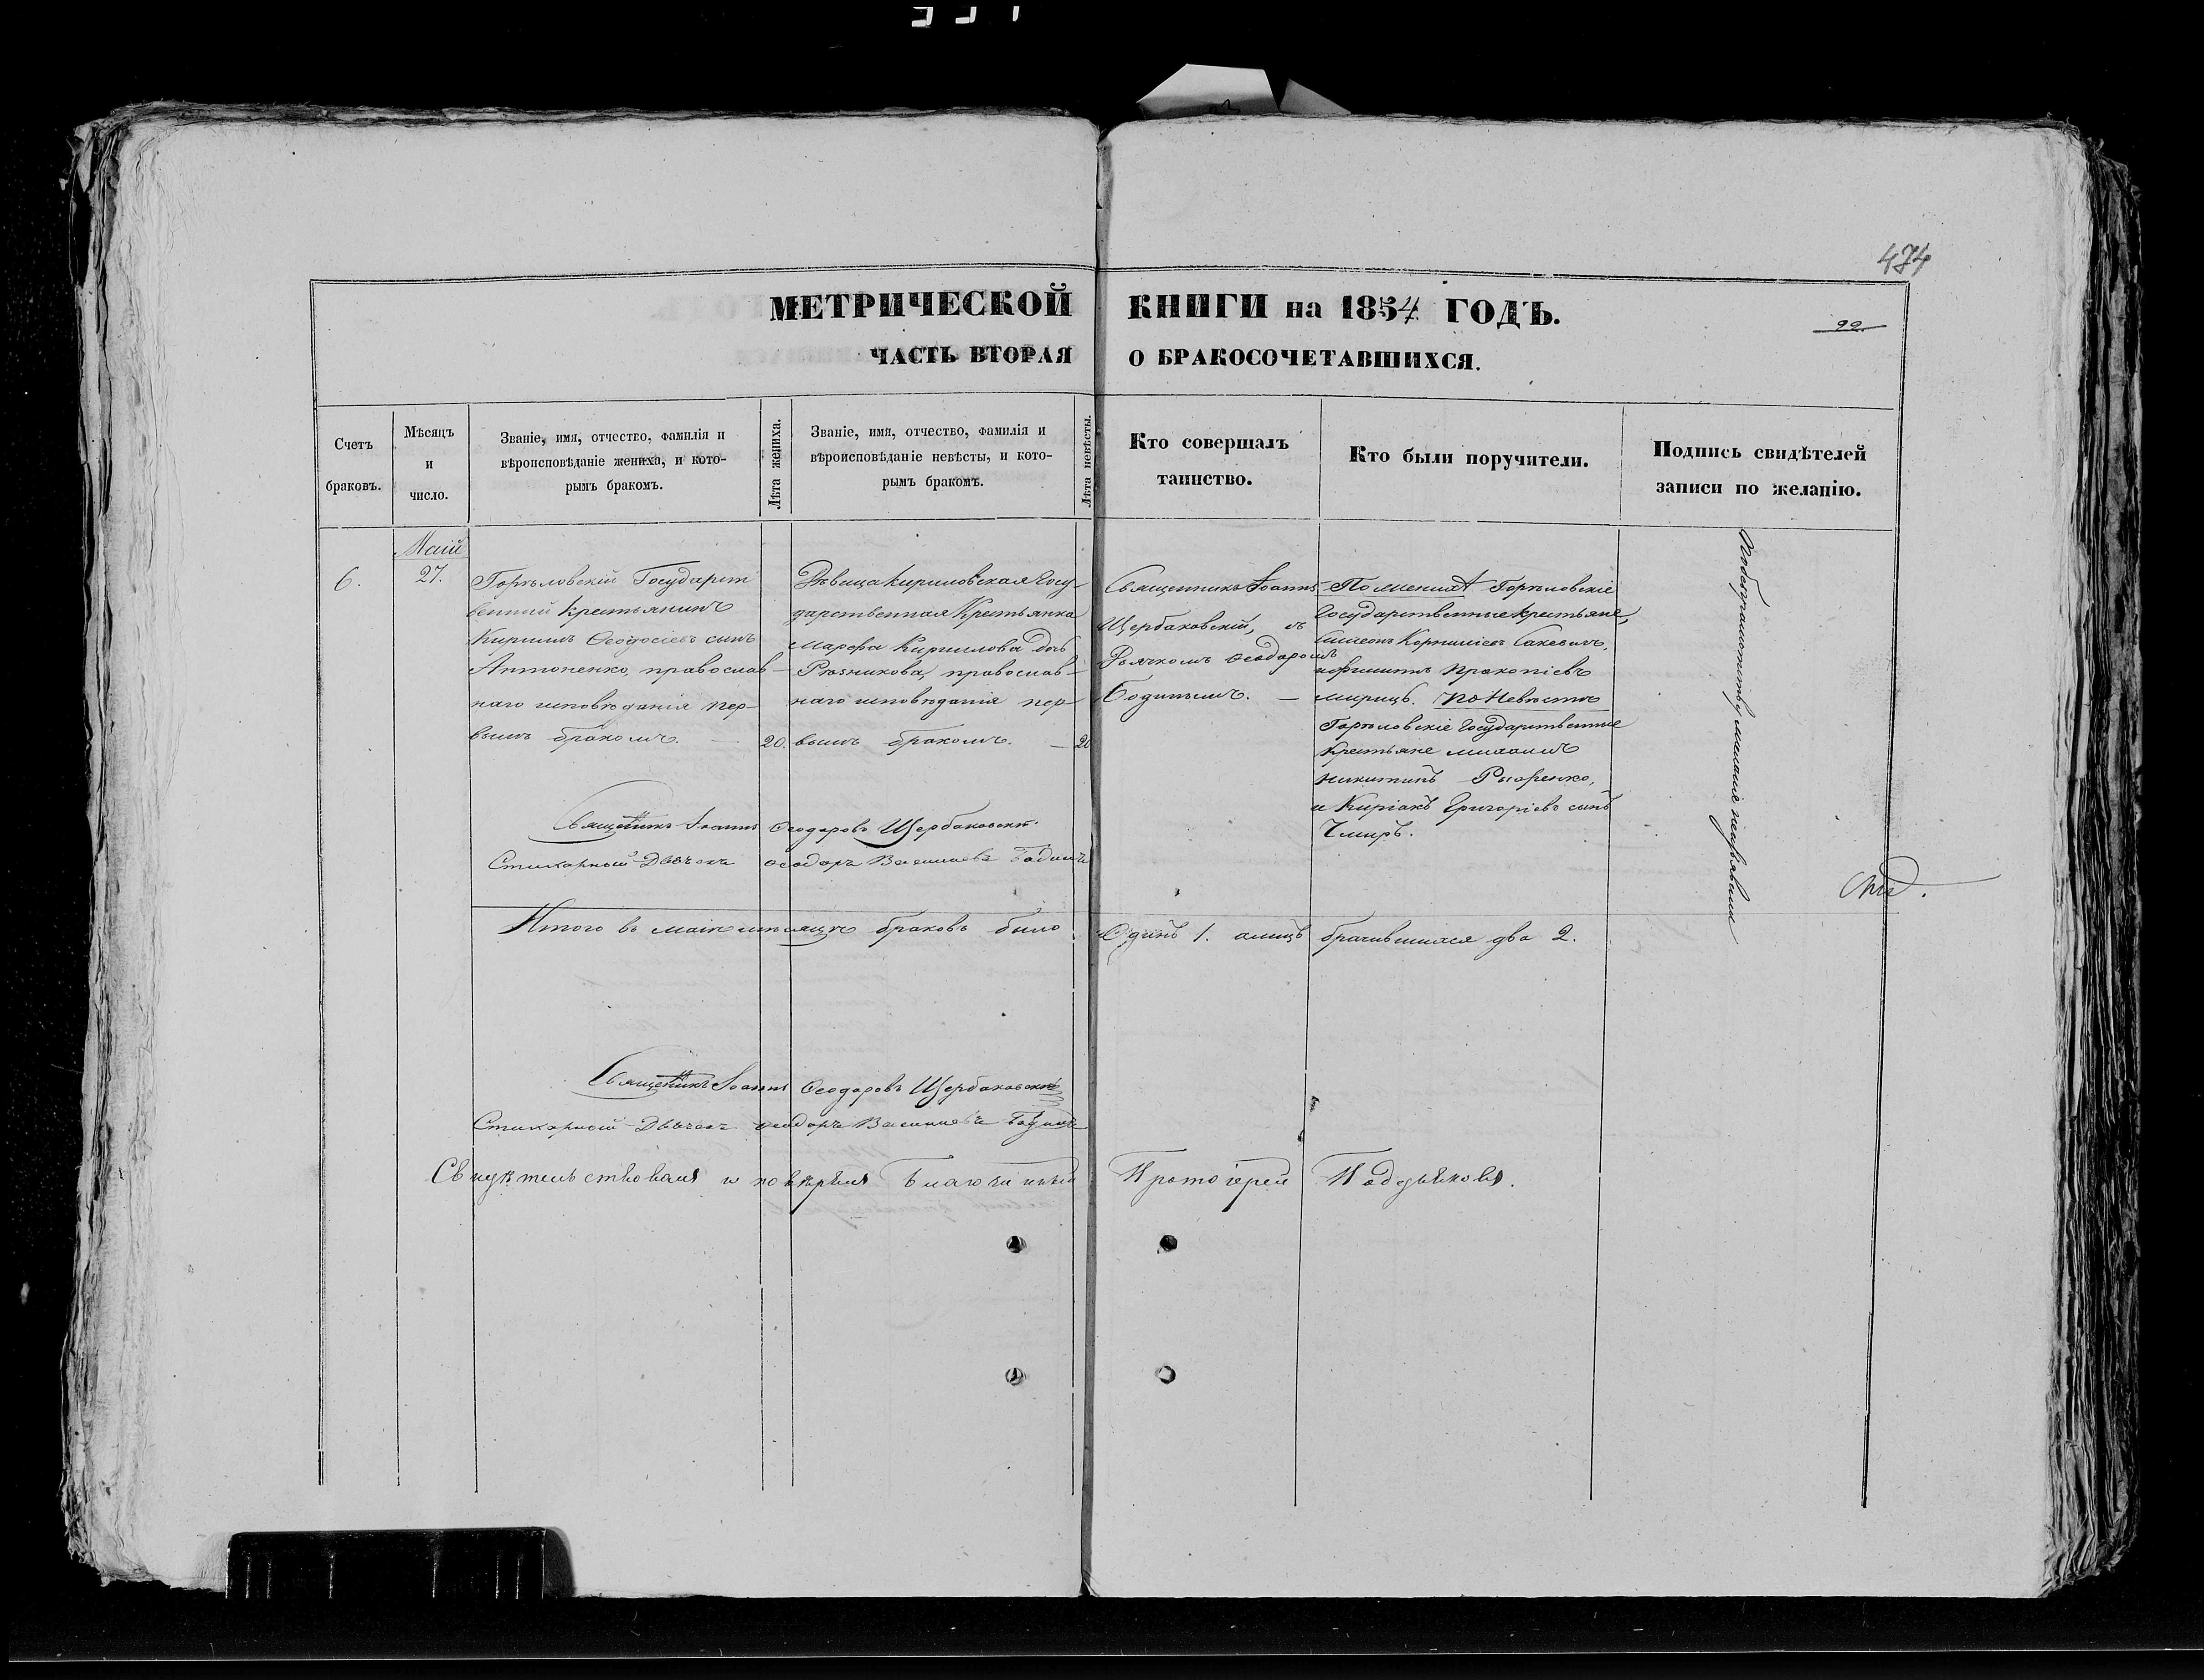 474
МЕТРИЧЕСКОЙ КНИГИ на 1854 ГОДЪ.
99
ЧАСТЬ ВТОРАЯ О БРАКОСОЧЕТАВШИХСЯ.
Счетъ
браковъ.
Мѣсяцъ
и
число.
Званіе, имя, отчество, фамилія и
вѣроисповѣданіе жениха, и кото-
рымъ бракомъ.
Лѣта жениха.
Званіе, имя, отчество, фамилія и
вѣроисповѣданіе невѣсты, и кото-
рымъ бракомъ.
Лѣта невѣсты.
Кто совершалъ
таинство.
Кто были поручители.
Подпись свидѣтелей
записи по желанію.
6.
Маій
27.
Горѣловскій Государст
венный крестьянинъ
Кириллъ Ѳеодосіевъ сынъ
Антоненко, православ-
наго исповѣданія пер-
вымъ бракомъ.
20.
Дѣвица кириловская Госу
дарственная Крестьянка
Марѳа Кириллова дочь
Рѣзникова, православ-
наго исповѣданія пер-
вымъ бракомъ.
20
Священникъ Іоаннъ
Щербаковскій, съ
Дьячкомъ Ѳеодоромъ
По женихѣ Горѣловскіе
Государственные крестьяне,
Симеонъ Корниліевъ
Прокопіевъ
По Невѣстѣ
Горѣловскіе Государственные
Крестьяне Михаилъ
Никитинъ
и Киріакъ Григоріевъ сынъ
Чмиръ.
Священникъ Іоаннъ Ѳеодоровъ Щербаковскій
Стихарный Дьячекъ Ѳеодоръ Васильевъ
Итого въ маіи мѣсяцѣ браковъ было Одинъ 1. а лицъ брачившихся два 2.
Священникъ Іоаннъ Ѳеодоровъ Щербаковскій
Стихарный Дьячекъ Ѳеодоръ Васильевъ
Свидѣтельствовалъ и повѣрялъ Благочинный Протоіерей